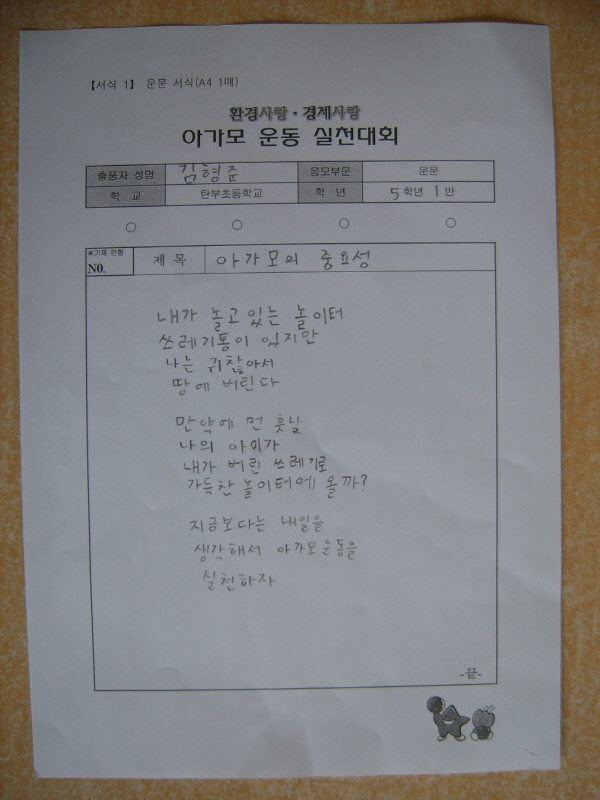 【서식 1】 운문 서식(A4 1매)
환경사랑·경제사랑
아가모 운동 실천대회
출품자 성명 김형준 응모부문 운문
학 교 탄부초등학교 학 년 5학년 1반
○ ○ ○ ○
※기재 안함
N0.
제 목 아가모의 중요성
내가 놀고 있는 놀이터
쓰레기통이 있지만
나는 귀찮아서
땅에 버린다
만약에 먼 훗날
나의 아이가
내가 버린 쓰레기로
가득찬 놀이터에 올까?
지금보다는 내일을
생각해서 아가모운동을
실천하자
-끝-